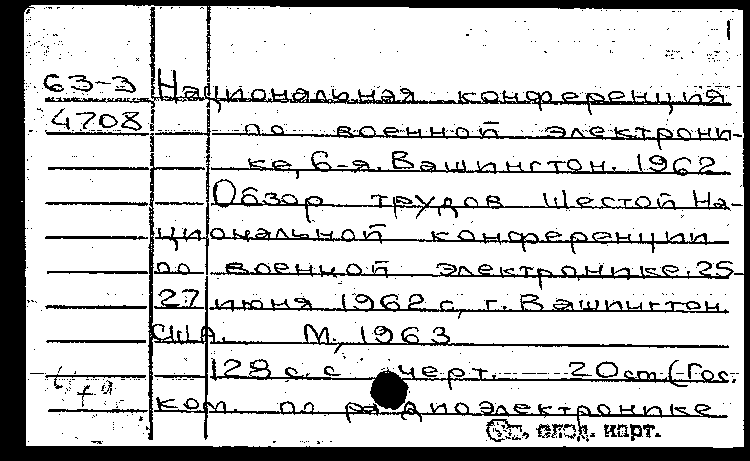 1
63-3 Национальная конференция
4708 по военной электрони-
ке, 6-я. Вашингтон. 1962
Обзор трудов Шестой На-
циональной конференции
по военной электронике. 25-
27 июня 1962 г, г. Вашингтон.
США. М., 1963
128 с. с черт. 20 см (Гос.
ком. по радиоэлектронике
см. след. карт.